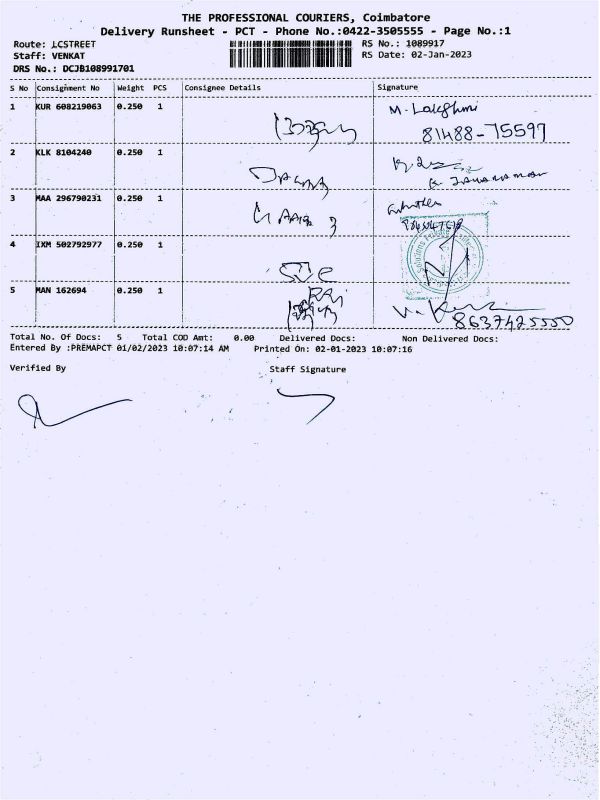 THE PROFESSIONAL COURIERS, Coimbatore
Delivery Runsheet - PCT - Phone No.:0422-3505555 - Page No.:1
Route: LCSTREET
RS No.: 1089917
Staff: VENKAT
RS Date: 02-Jan-2023
DRS No.: DCJB108991701
S No Consignment No Weight PCS Consignee Details Signature
1 KUR 608219063 0.250 1 M. Lakshmi
81488-75597
2 KLK 8104240 0.250 1
3 MAA 296790231 0.250 1
4 IXM 502792977 0.250 1
5 MAN 162694 0.250 1
8637425550
Total No. Of Docs: 5 Total COD Amt: 0.00 Delivered Docs: Non Delivered Docs:
Entered By :PREMAPCT 01/02/2023 10:07:14 AM Printed On: 02-01-2023 10:07:16
Verified By Staff Signature